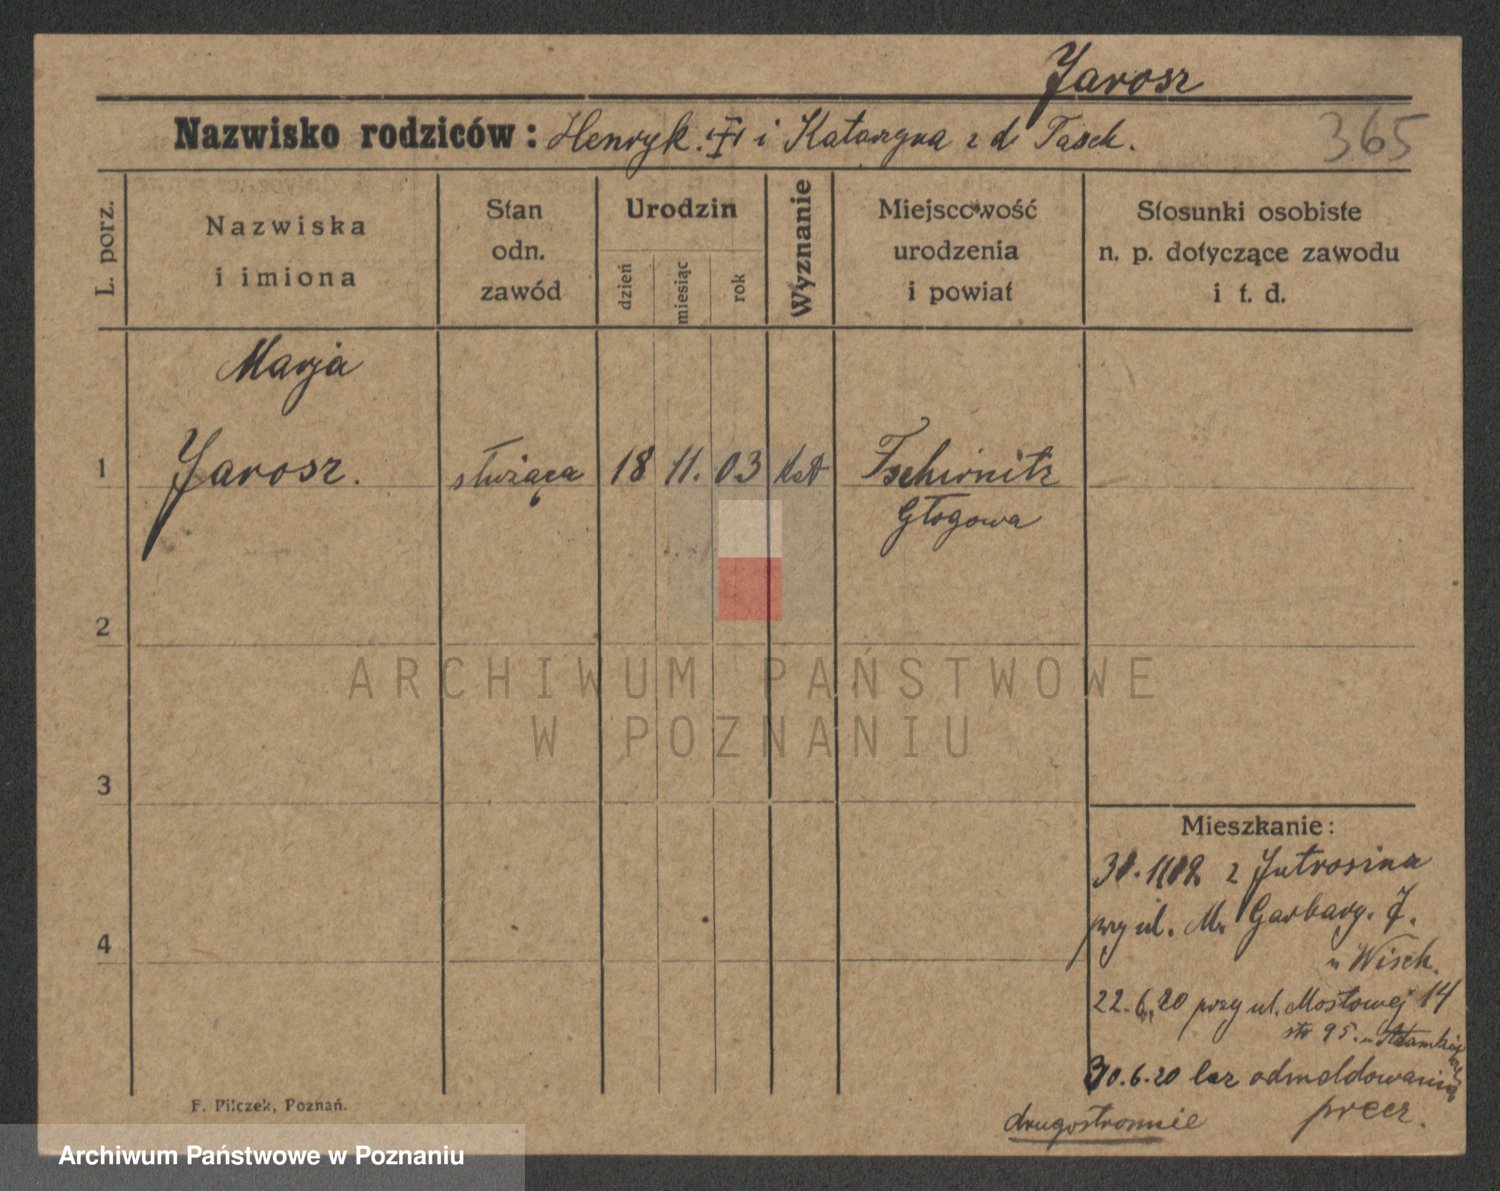 Jarosz
Nazwisko rodziców: Henryk. i Katarzyna z d Tasch.
365
L. porz.
Nazwiska
i imiona
Stan
odn.
zawód
Urodzin
dzień
miesiąc
rok
Wyznanie
Miejscowość
urodzenia
i powiat
Stosunki osobiste
n. p. dotyczące zawodu
i t. d.
Marja
1 Jarosz. służąca 18 11. 03 kat Tschirnitz
Głogowa
2
ARCHIWUM PAŃSTWOWE
W POZNANIU
3
4
Mieszkanie:
z Jutrosina
przy ul. M. Garbary. 7.
u Wisch.
22.6.20 przy ul. Mostowej 14
95. u
30.6.20 bez odmeldowania
precz.
drugostronnie
F. Pilczek, Poznań.
Archiwum Państwowe w Poznaniu